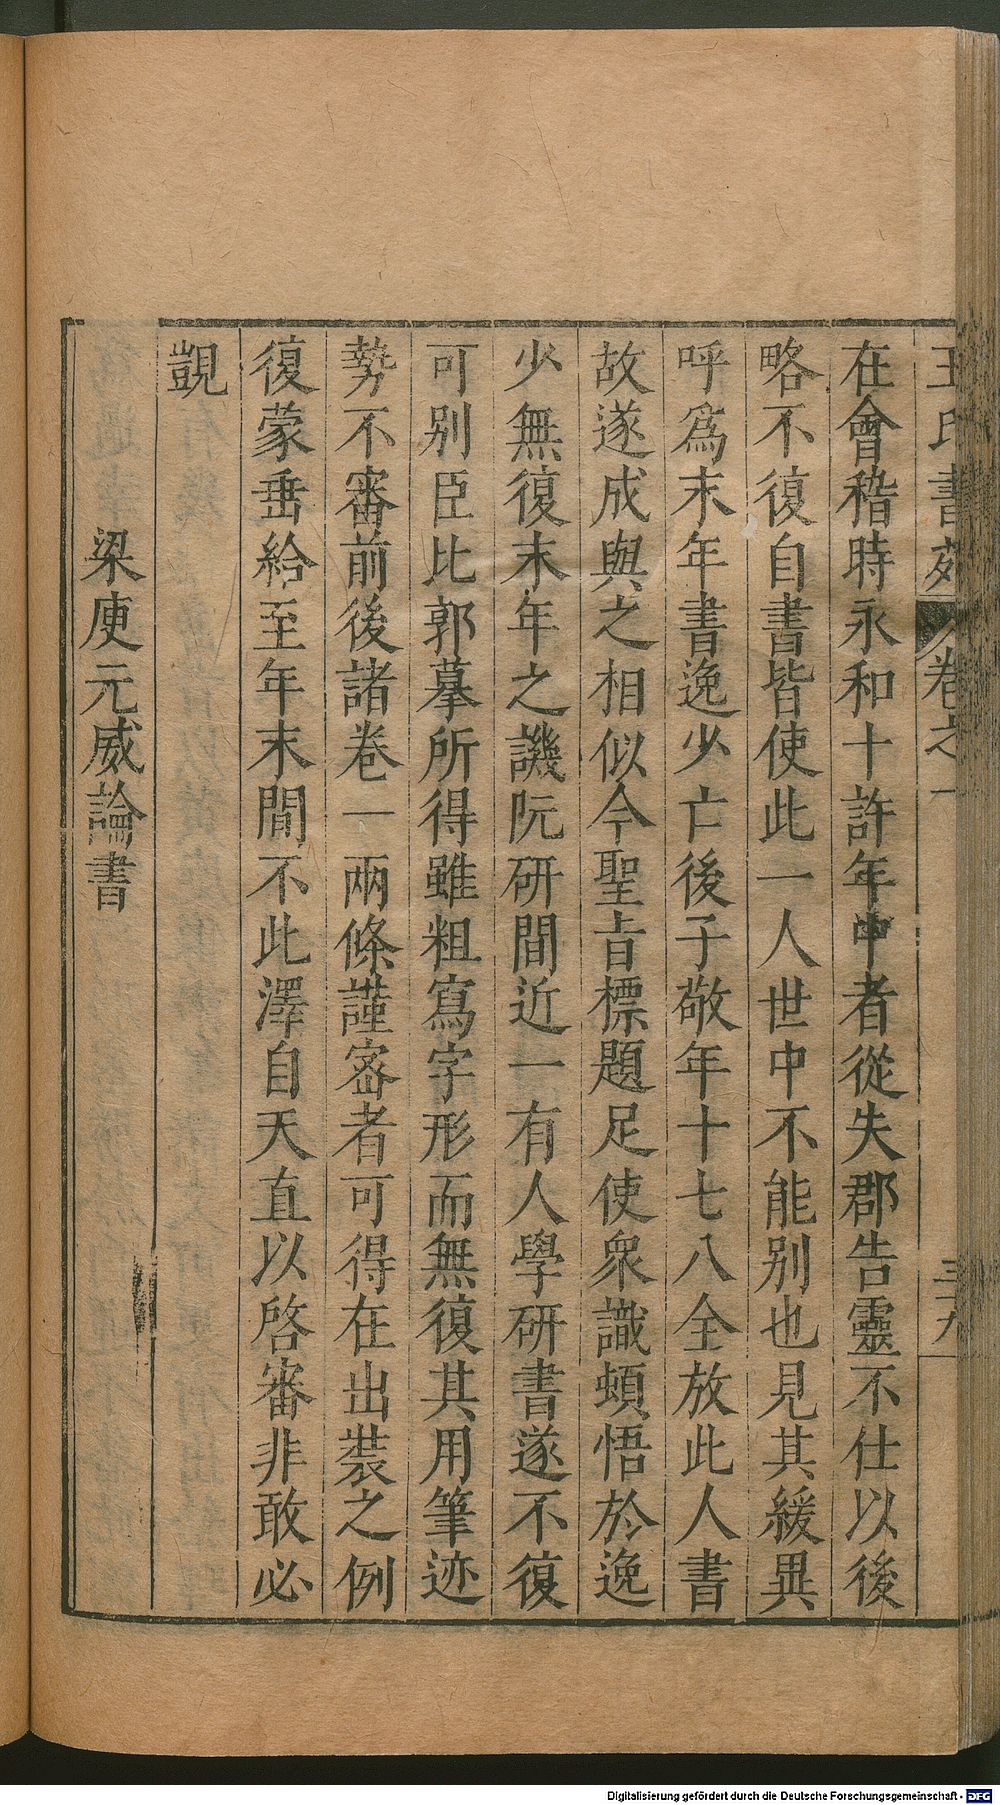 王氏書苑 卷之一 三十九
在會稽時永和十許年中者從失郡告靈不仕以後
略不復自書皆使此一人世中不能别也見其緩異
呼爲末年書逸少亡後子敬年十七八全放此人書
故遂成與之相似今聖旨標題足使衆識頓悟於逸
少無復末年之譏阮研間近一有人學研書遂不復
可别臣比郭摹所得雖粗寫字形而無復其用筆迹
勢不審前後諸卷一兩條謹密者可得在出裝之例
復蒙垂給至年末間不此澤自天直以啓審非敢必
覬
梁庾元威論書
Digitalisierung gefördert durch die Deutsche Forschungsgemeinschaft - DFG